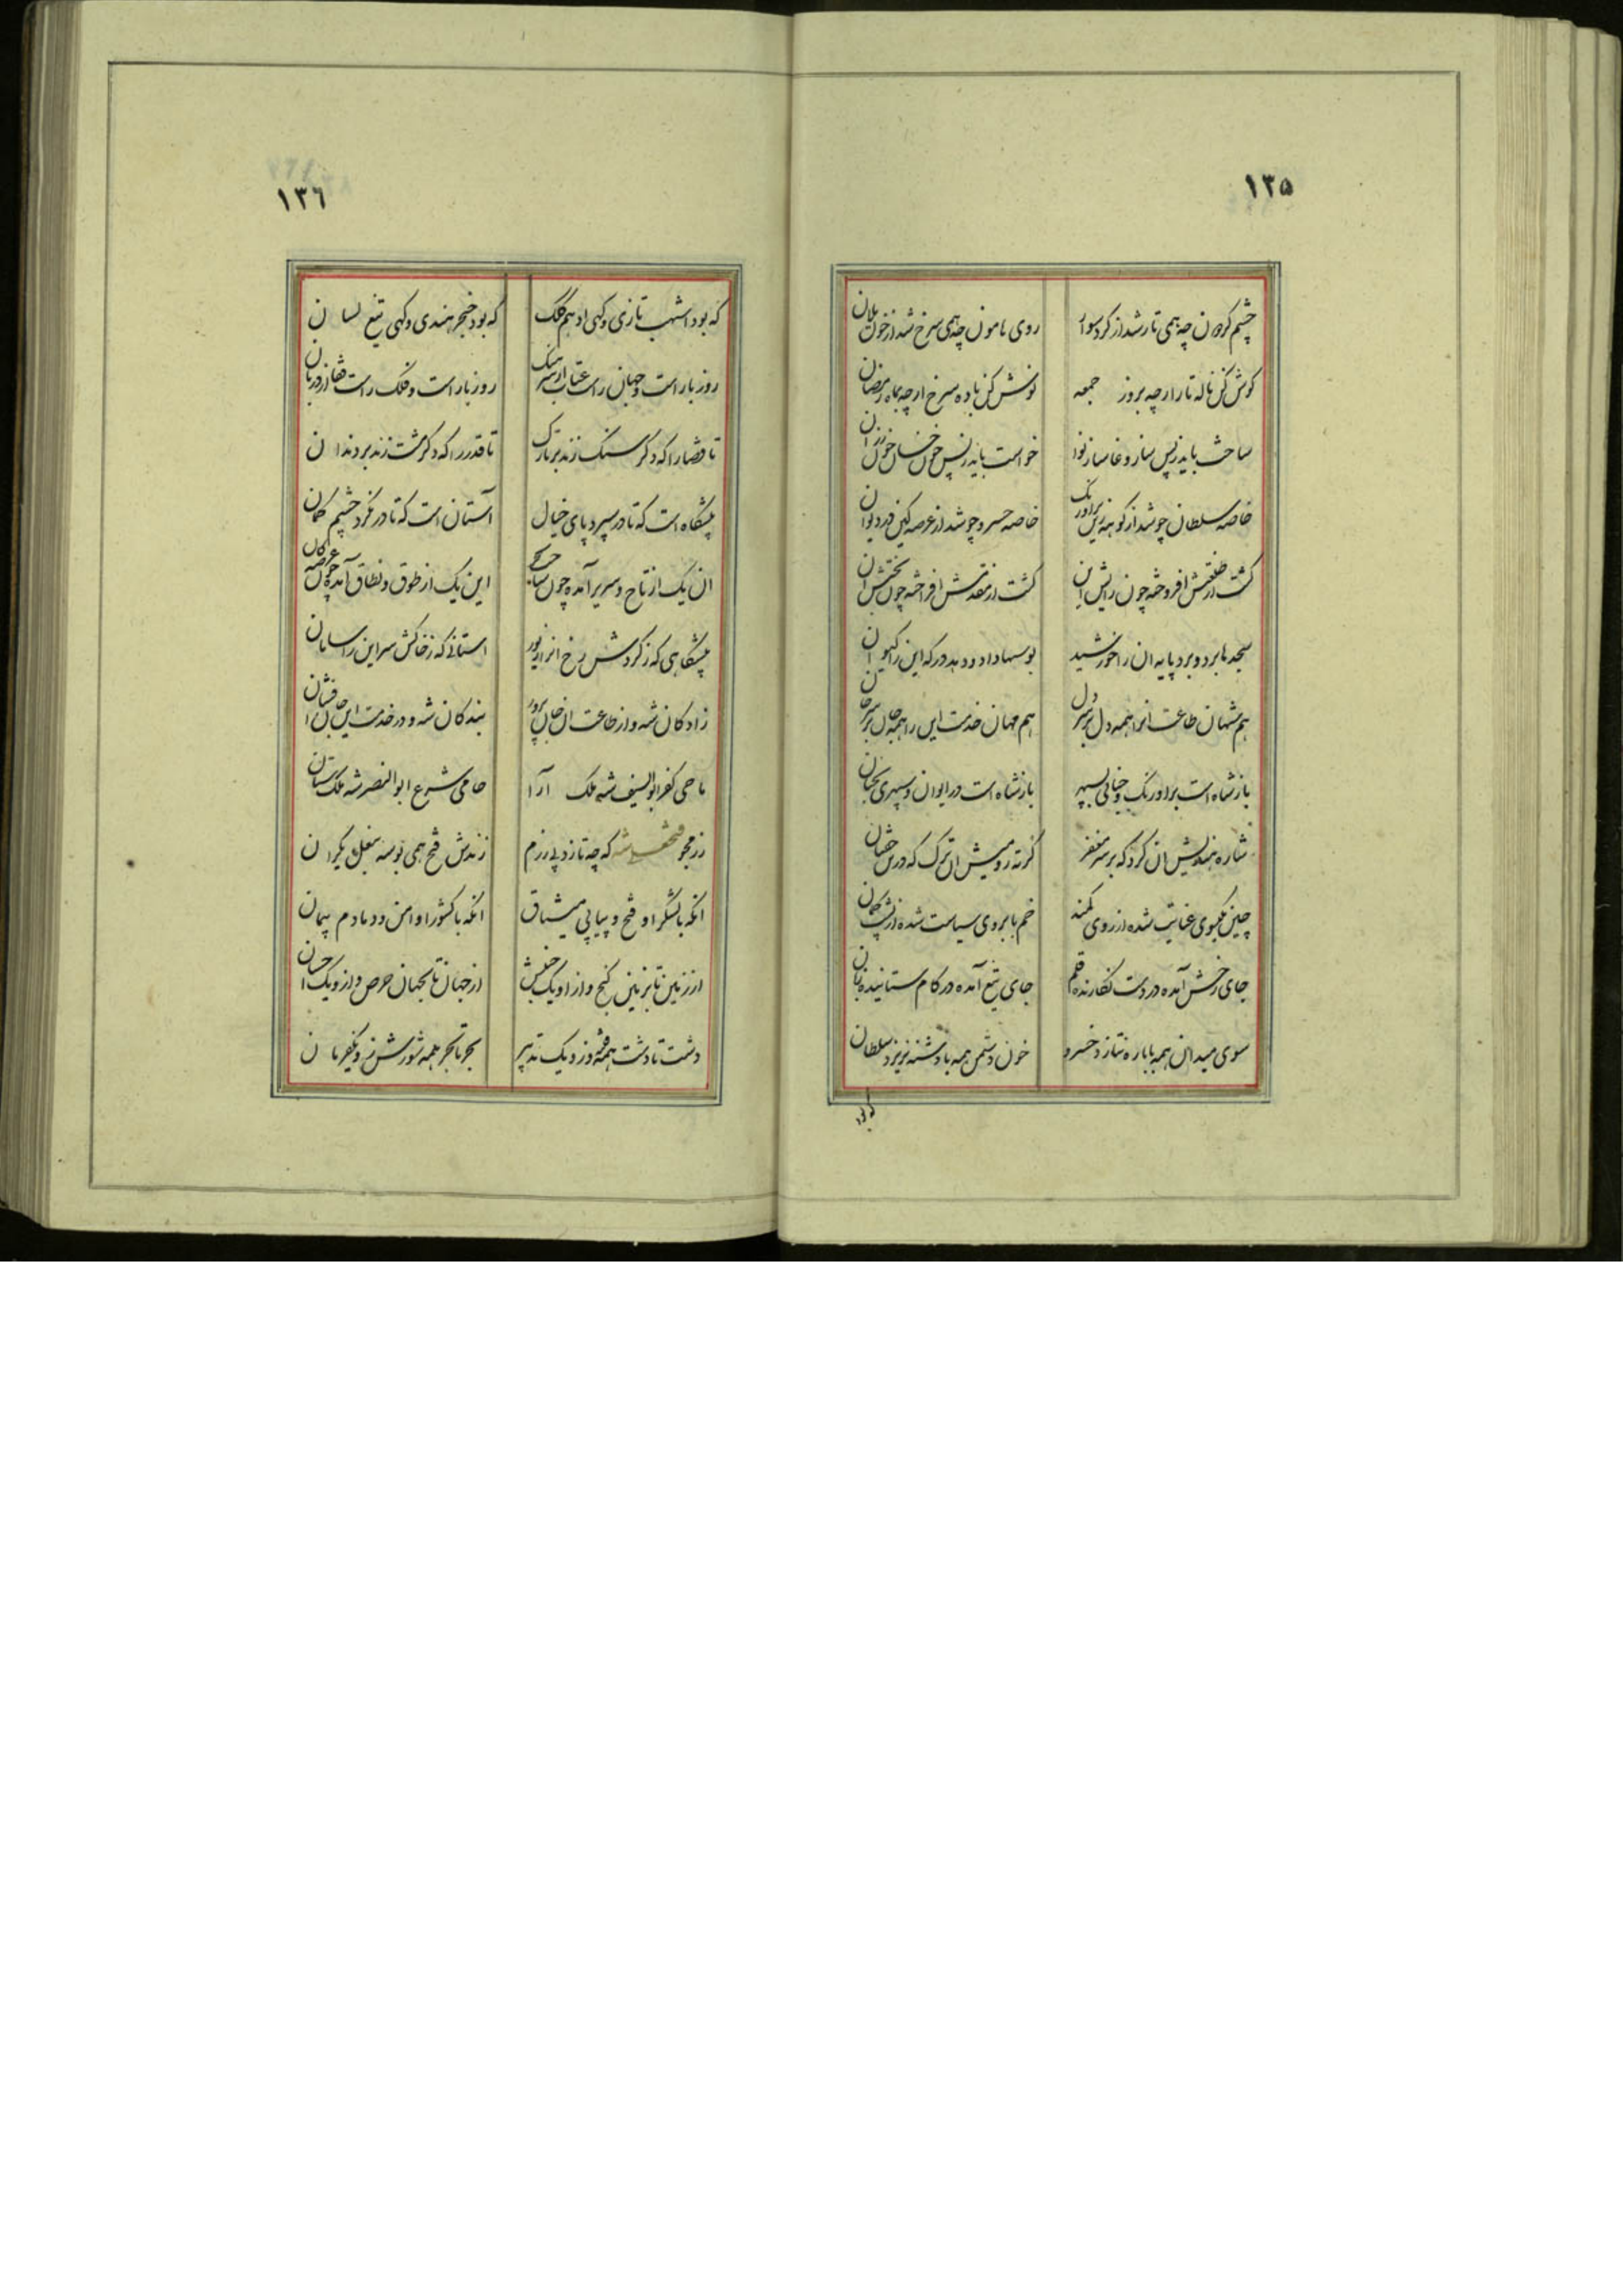 ١٣٥
چشم کردون چه همی تار شد از کرد سوار روی هامون چه همی سرخ شد از خون یلان
کوش کن ناله تار ار چه بروز جمعه نوش کن باده سرخ ار چه بماه رمضان
ساخت باید زپس ساز وغا ساز نوا خواست باید زپس خون خسان خون رزان
خاصه سلطان چو شد از کوهه زین بر اورنک خاصه خسرو چو شد از عرصه کین در دیوان
کشت از طلعتش افروخته چون رایش این کشت از مقدمش افراخته چون بختش ان
سجدها برد و برد پایه ان را خورشید بوسها داد و دهد درکه این را کیوان
هم شهان طاعت انرا همه دل بر سر دل هم مهان خدمت این را همه جان بر سر جان
باز شاه است بر اورنک و سپهر باز شاه است در ایوان و سپهری
شاره هندیش ان کرد که بر سر مغفر کرته رومیش ان ترک که در بر خفتان
چین بکیسوی عنایت شده از روی کمند خم بابروی سیاست شده از پشت کمان
جای رخش آمده در دست نکارنده قلم جای تیغ آمده در کام ستاینده زبان
سوی میدان همه با باره نتازد خسرو خون دشمن همه با دشنه نریزد سلطان
که بود
١٣٦
که بود اشهب تازی و کهی ادهم کلک که بود خنجر هندی و کهی تیغ لسان
روز بار است و جهان راست عتاب از سرهنک روز بار است و فلک راست قفا از دربان
تا قضا را که دکر سنک زند بر تارک تا قدر را که دکر مشت زند بر دندان
پیشکاه است که تا در سپرد پای خیال آستان است که تا در نکرد چشم کمان
ان یک از تاج و سریر آمده چون این یک از طوق و نطاق آمده چون
پیشکاهی که ز کردش رخ انرا زیور استانی که ز خاکش سر این را سامان
زادکان شه و از طاعت ان جان پرور بندکان شه و در خدمت این جان افشان
ماحی کفر ابوالسیف شه ملک آرا حامی شرع ابوالنصر شه ملک ستان
رزمجو فتحعلی شه که چه تازد پی رزم زندش فتح همی بوسه بنعل یکران
انکه با لشکر او فتح و پیاپی میثاق انکه با کشور او امن و دمادم پیمان
از زمین تا بزمین کنج و از او یک بخشش از جهان تا بجهان حرص و از و یک احسان
دشت تا دشت همه فتنه وز و یک تدبیر بحر تا بحر همه شورش و زو یکفرمان